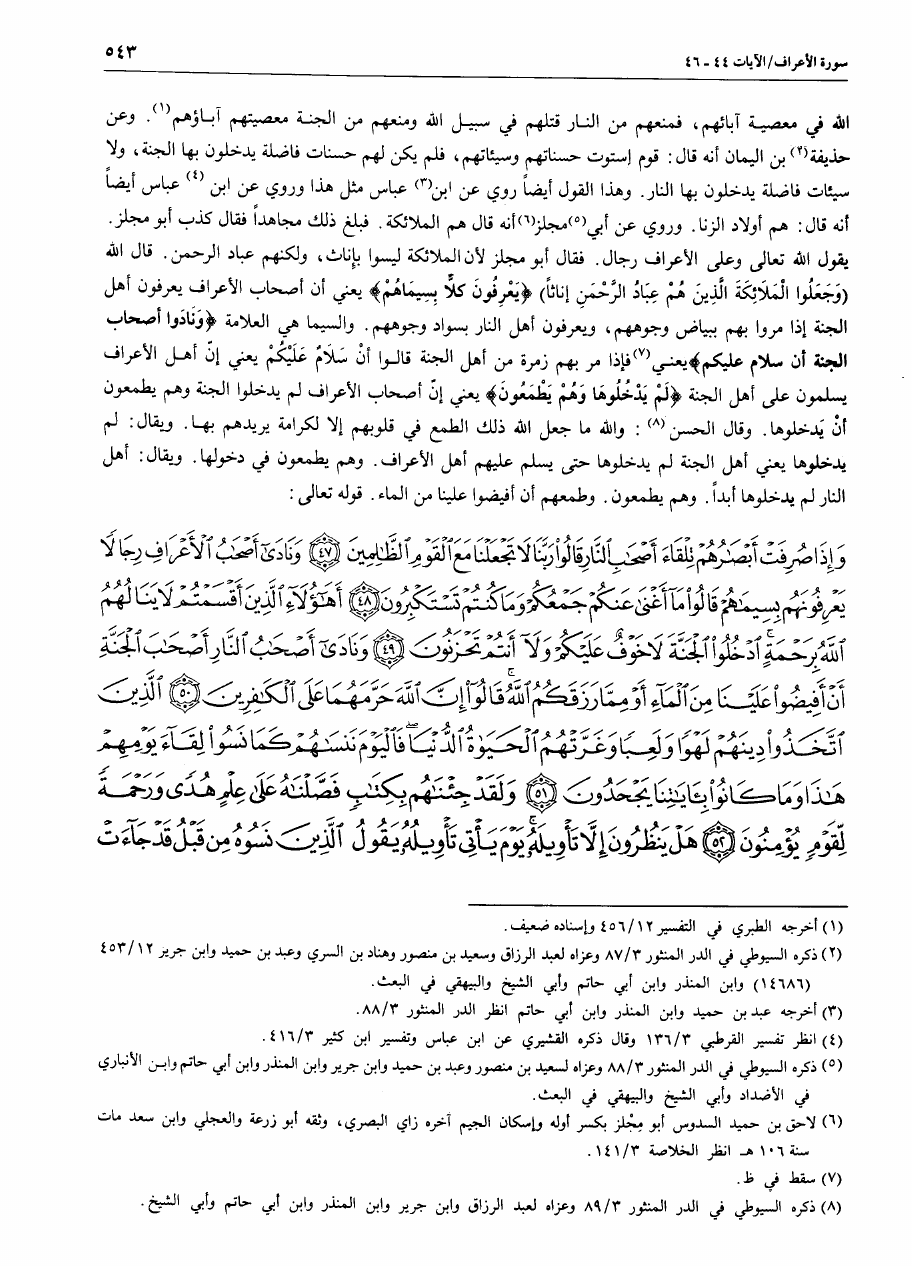 سورة الأعراف/الآيات ٤٤ - ٤٦
٥٤٣
الله في معصية آبائهم، فمنعهم من النار قتلهم في سبيل الله ومنعهم من الجنة معصيتهم آباؤهم(١). وعن
حذيفة(٢) بن اليمان أنه قال: قوم إستوت حسناتهم وسيئاتهم، فلم يكن لهم حسنات فاضلة يدخلون بها الجنة، ولا
سيئات فاضلة يدخلون بها النار. وهذا القول أيضاً روي عن ابن(٣) عباس مثل هذا وروي عن ابن (٤) عباس أيضاً
أنه قال: هم أولاد الزنا. وروي عن أبي(٥)مجلز(٦)أنه قال هم الملائكة. فبلغ ذلك مجاهداً فقال كذب أبو مجلز.
يقول الله تعالى وعلى الأعراف رجال. فقال أبو مجلز لأن الملائكة ليسوا بإناث، ولكنهم عباد الرحمن. قال الله
(وَجَعَلُوا الْمَلَائِكَةَ الَّذِينَ هُمْ عِبَادُ الرَّحْمَنِ إناثاً) ﴿يَعْرِفُونَ كلاًّ بِسِيمَاهُمْ﴾ يعني أن أصحاب الأعراف يعرفون أهل
الجنة إذا مروا بهم ببياض وجوههم، ويعرفون أهل النار بسواد وجوههم. والسيما هي العلامة ﴿وَنَادَوا أصحاب
الجنة أن سلام عليكم﴾يعني(٧)فإذا مر بهم زمرة من أهل الجنة قالوا أنْ سَلَامٌ عَلَيْكُمْ يعني إنّ أهل الأعراف
يسلمون على أهل الجنة ﴿لَمْ يَدْخُلُوهَا وَهُمْ يَطْمَعُونَ﴾ يعني إنّ أصحاب الأعراف لم يدخلوا الجنة وهم يطمعون
أنْ يَدخلوها. وقال الحسن(٨): والله ما جعل الله ذلك الطمع في قلوبهم إلا لكرامة يريدهم بها. ويقال: لم
يدخلوها يعني أهل الجنة لم يدخلوها حتى يسلم عليهم أهل الأعراف. وهم يطمعون في دخولها. ويقال: أهل
النار لم يدخلوها أبداً. وهم يطمعون. وطمعهم أن أفيضوا علينا من الماء. قوله تعالى:
وَإِذَا صُرِفَتْ أَبْصَـٰرُهُمْ تِلْقَاءَ أَصْحَـٰبِ النَّارِ قَالُوا رَبَّنَا لَا تَجْعَلْنَا مَعَ الْقَوْمِ الظَّالِمِينَ ﴿٤٧﴾ وَنَادَىٰ أَصْحَـٰبُ الْأَعْرَافِ رِجَالًا
يَعْرِفُونَهُم بِسِيمَـٰهُمْ قَالُوا مَا أَغْنَىٰ عَنكُمْ جَمْعُكُمْ وَمَا كُنتُمْ تَسْتَكْبِرُونَ ﴿٤٨﴾ أَهَـٰؤُلَاءِ الَّذِينَ أَقْسَمْتُمْ لَا يَنَالُهُمُ
اللَّهُ بِرَحْمَةٍ ادْخُلُوا الْجَنَّةَ لَا خَوْفٌ عَلَيْكُمْ وَلَا أَنتُمْ تَحْزَنُونَ ﴿٤٩﴾ وَنَادَىٰ أَصْحَـٰبُ النَّارِ أَصْحَـٰبَ الْجَنَّةِ
أَنْ أَفِيضُوا عَلَيْنَا مِنَ الْمَاءِ أَوْ مِمَّا رَزَقَكُمُ اللَّهُ قَالُوا إِنَّ اللَّهَ حَرَّمَهُمَا عَلَى الْكَـٰفِرِينَ ﴿٥٠﴾ الَّذِينَ
اتَّخَذُوا دِينَهُمْ لَهْوًا وَلَعِبًا وَغَرَّتْهُمُ الْحَيَوٰةُ الدُّنْيَا فَالْيَوْمَ نَنسَـٰهُمْ كَمَا نَسُوا لِقَاءَ يَوْمِهِمْ
هَـٰذَا وَمَا كَانُوا بِـَٔايَـٰتِنَا يَجْحَدُونَ ﴿٥١﴾ وَلَقَدْ جِئْنَـٰهُم بِكِتَـٰبٍ فَصَّلْنَـٰهُ عَلَىٰ عِلْمٍ هُدًى وَرَحْمَةً
لِّقَوْمٍ يُؤْمِنُونَ ﴿٥٢﴾ هَلْ يَنظُرُونَ إِلَّا تَأْوِيلَهُ يَوْمَ يَأْتِي تَأْوِيلُهُ يَقُولُ الَّذِينَ نَسُوهُ مِن قَبْلُ قَدْ جَاءَتْ
(١) أخرجه الطبري في التفسير ٤٥٦/١٢ وإسناده ضعيف.
(٢) ذكره السيوطي في الدر المنثور ٨٧/٣ وعزاه لعبد الرزاق وسعيد بن منصور وهناد بن السري وعبد بن حميد وابن جرير ٤٥٣/١٢
(١٤٦٨٦) وابن المنذر وابن أبي حاتم وأبي الشيخ والبيهقي في البعث.
(٣) أخرجه عبد بن حميد وابن المنذر وابن أبي حاتم انظر الدر المنثور ٨٨/٣.
(٤) انظر تفسير القرطبي ١٣٦/٣ وقال ذكره القشيري عن ابن عباس وتفسير ابن كثير ٤١٦/٣.
(٥) ذكره السيوطي في الدر المنثور ٨٨/٣ وعزاه لسعيد بن منصور وعبد بن حميد وابن جرير وابن المنذر وابن أبي حاتم وابن الأنباري
في الأضداد وأبي الشيخ والبيهقي في البعث.
(٦) لاحق بن حميد السدوس أبو مِجْلز بكسر أوله وإسكان الجيم آخره زاي البصري، وثقه أبو زرعة والعجلي وابن سعد مات
سنة ١٠٦ هـ انظر الخلاصة ١٤١/٣.
(٧) سقط في ظ.
(٨) ذكره السيوطي في الدر المنثور ٨٩/٣ وعزاه لعبد الرزاق وابن جرير وابن المنذر وابن أبي حاتم وأبي الشيخ.